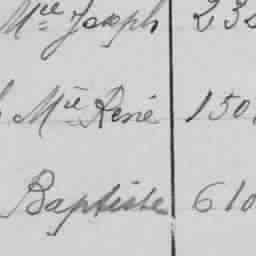 Mie Joseph 232
Mie René 150
Baptiste 610